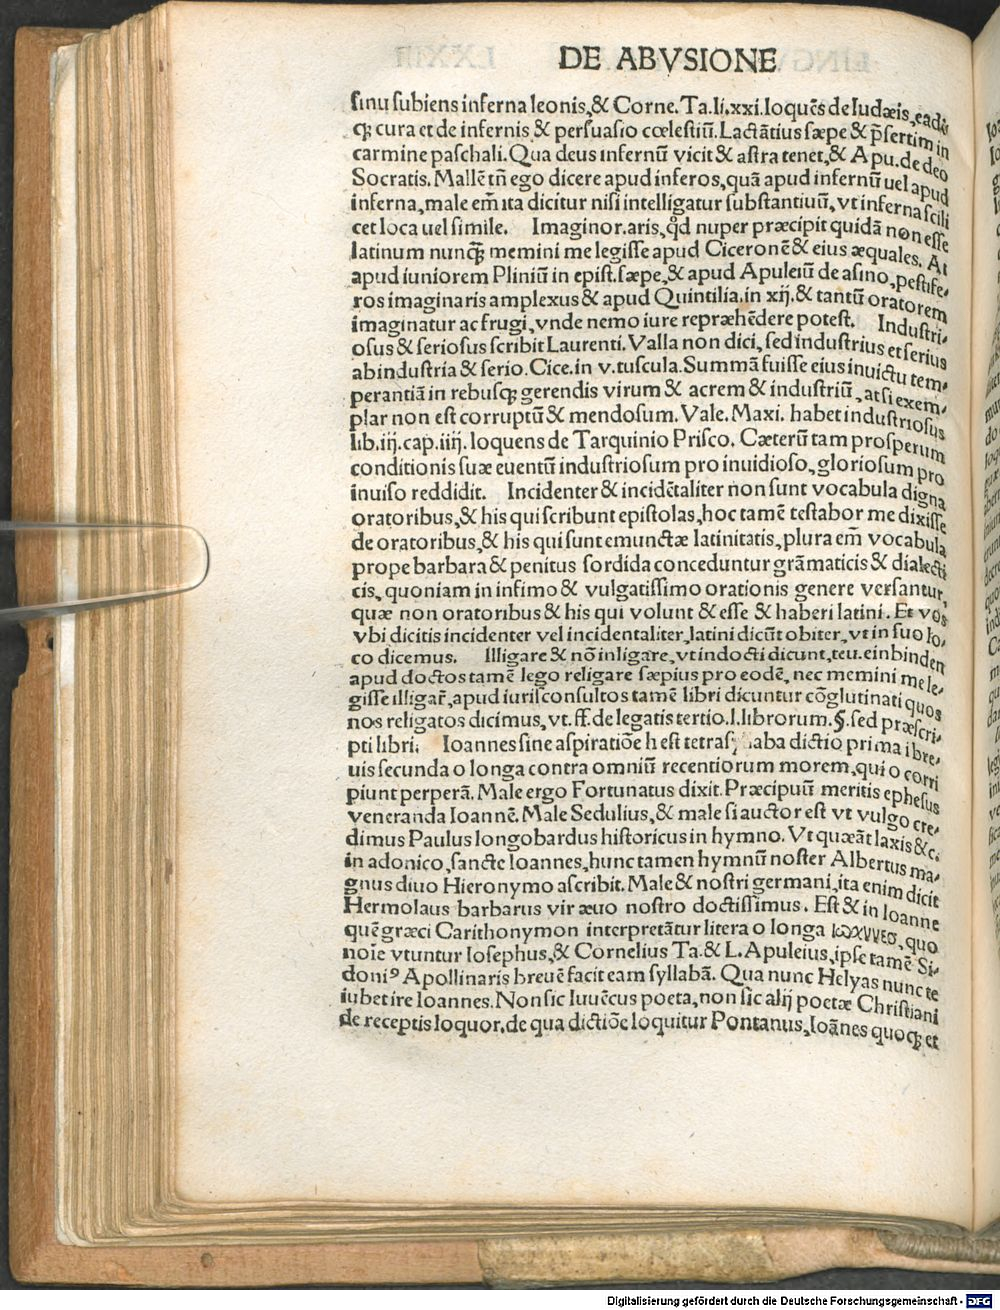 DE ABVSIONE
sinu subiens inferna leonis,& Corne.Ta.li.xxi.loquẽs de Iudæis,eadẽ
q̃ cura et de infernis & persuasio cœlestiũ.Lactãtius sæpe & p̃sertim in
carmine paschali.Qua deus infernũ vicit & astra tenet,& Apu.de deo
Socratis.Mallẽ tñ ego dicere apud inferos,quã apud infernũ uel apud
inferna,male em̃ ita dicitur nisi intelligatur substantiuũ,vt inferna scili
cet loca uel simile. Imaginor.aris,qđ nuper præcipit quidã non esse
latinum nunq̃ memini me legisse apud Ciceronẽ & eius æquales. At
apud iuniorem Pliniũ in epist.sæpe,& apud Apuleiũ de asino,pestife-
ros imaginaris amplexus & apud Quintilia.in xij.& tantũ oratorem
imaginatur ac frugi,vnde nemo iure repræhẽdere potest. Industri-
osus & seriosus scribit Laurenti.Valla non dici,sed industrius et serius
ab industria & serio.Cice.in v.tuscula.Summã fuisse eius inuictu tem-
perantiã in rebusq̃ gerendis virum & acrem & industriũ,at si exem-
plar non est corruptũ & mendosum.Vale.Maxi. habet industriosus
lib.iij.cap.iiij.loquens de Tarquinio Prisco.Cæterũ tam prosperum
conditionis suæ euentũ industriosum pro inuidioso,gloriosum pro
inuiso reddidit. Incidenter & incidẽtaliter non sunt vocabula digna
oratoribus,& his qui scribunt epistolas,hoc tamẽ testabor me dixisse
de oratoribus,& his qui sunt emunctæ latinitatis,plura em̃ vocabula
prope barbara & penitus sordida conceduntur grãmaticis & dialecti
cis,quoniam in infimo & vulgatissimo orationis genere versantur,
quæ non oratoribus & his qui volunt & esse & haberi latini.Et vos
vbi dicitis incidenter vel incidentaliter,latini dicũt obiter,vt in suo lo-
co dicemus. Illigare & nõ inligare,vt indocti dicunt,teu.einbinden
apud doctos tamẽ lego religare sæpius pro eodẽ,nec memini me le-
gisse illigar̃,apud iurisconsultos tamẽ libri dicuntur cõglutinati quos
nos religatos dicimus,vt.ff.de legatis tertio.l.librorum.§.sed præscri-
pti libri. Ioannes sine aspiratiõe h est tetrasyllaba dictio prima i bre-
uis secunda o longa contra omniũ recentiorum morem,qui o corri
piunt perperã.Male ergo Fortunatus dixit.Præcipuũ meritis ephesus
veneranda Ioannẽ.Male Sedulius,& male si auctor est vt vulgo cre-
dimus Paulus longobardus historicus in hymno.Vt queãt laxis &c.
in adonico,sancte Ioannes,hunc tamen hymnũ noster Albertus ma-
gnus diuo Hieronymo ascribit.Male & nostri germani,ita enim dicit
Hermolaus barbarus vir æuo nostro doctissimus. Est & in Ioanne
quẽ græci Carithonymon interpretãtur litera o longa ἰωάννεσ,quo
noĩe vtuntur Iosephus,& Cornelius Ta.& L.Apuleius,ipse tamẽ Si-
doniꝰ Apollinaris breuẽ facit eam syllabã.Qua nunc Helyas nunc te
iubet ire Ioannes.Non sic Iuuẽcus poeta,non sic alij poetæ Christiani
de receptis loquor,de qua dictiõe loquitur Pontanus,Ioãnes quoq̃ et
Digitalisierung gefördert durch die Deutsche Forschungsgemeinschaft - DFG